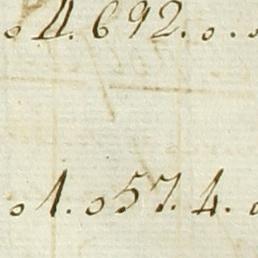 o 4.692.o.o
o 1.o57.4.o